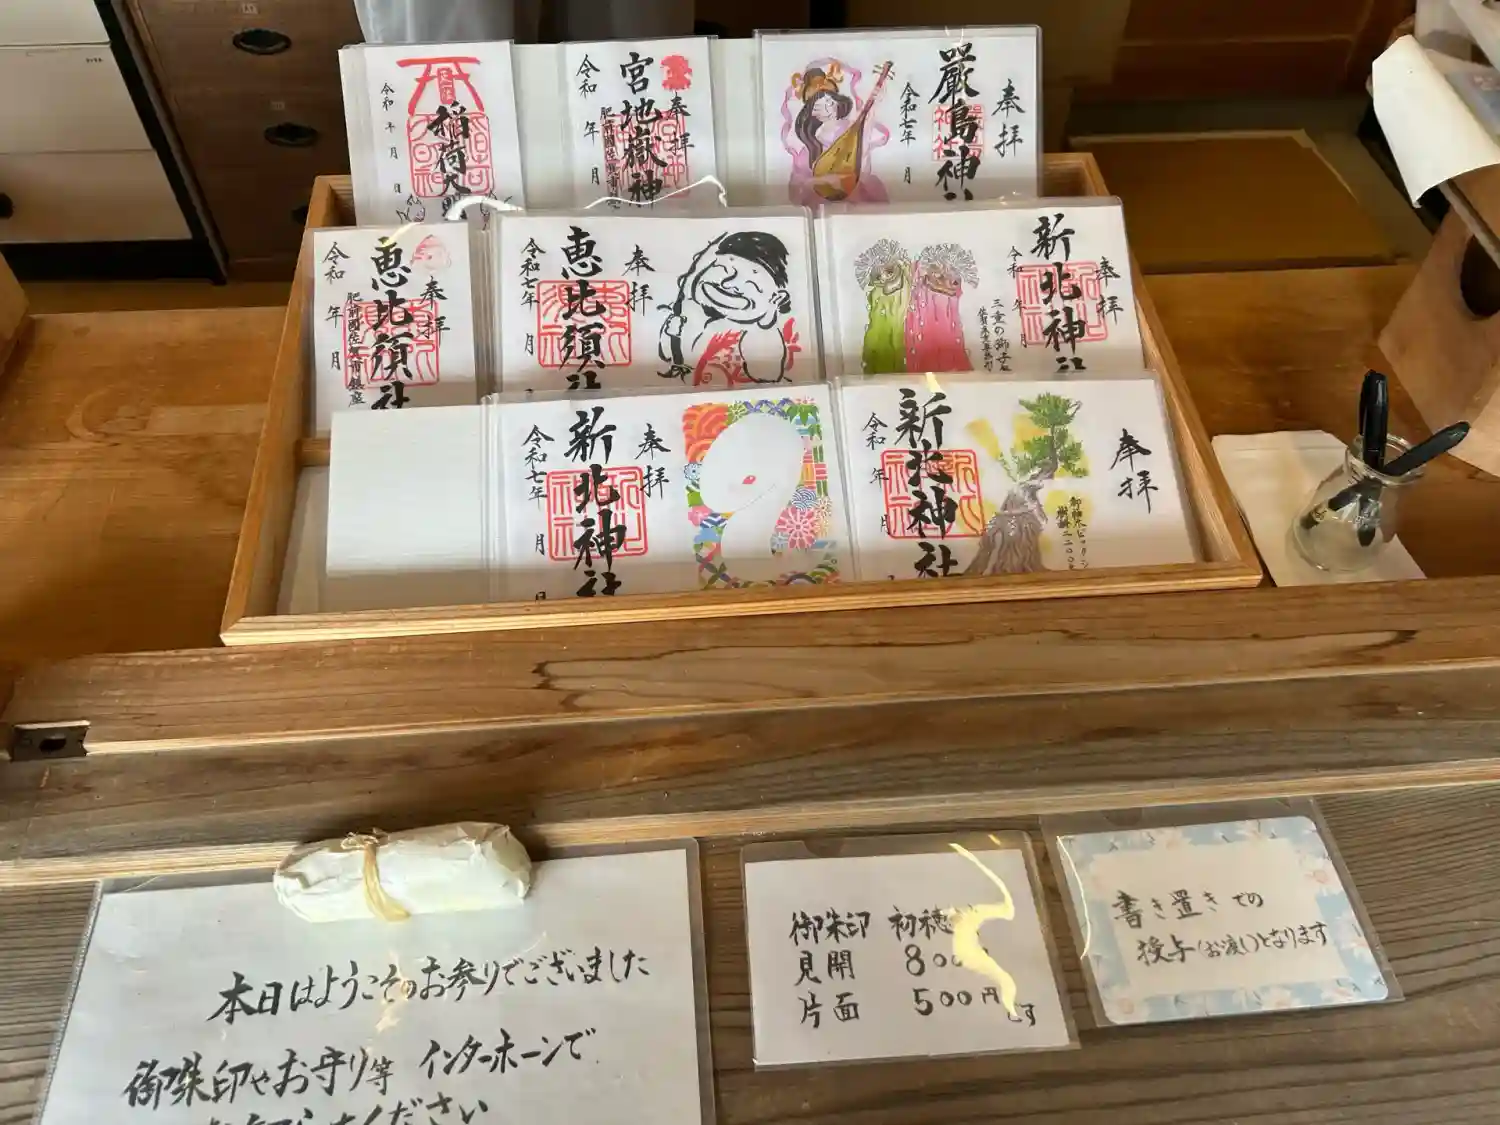 稲荷大明
令和 年 月 日
奉拝
宮地嶽神
令和 年 月
奉拝
嚴島神社
令和七年 月
奉拝
恵比須社
肥前國佐賀市鎮座
令和 年 月
奉拝
恵比須社
令和七年 月
奉拝
新北神社
令和 年 月
三重の獅子
奉拝
新北神社
令和七年 月
奉拝
新北神社
令和 年 月
御神木ビャクシン
本日はようこそのお参りでございました
御朱印やお守り等 インターホーンで
ください
御朱印 初穂
見開 800
片面 500円です
書き置きでの
授与(お渡し)となります